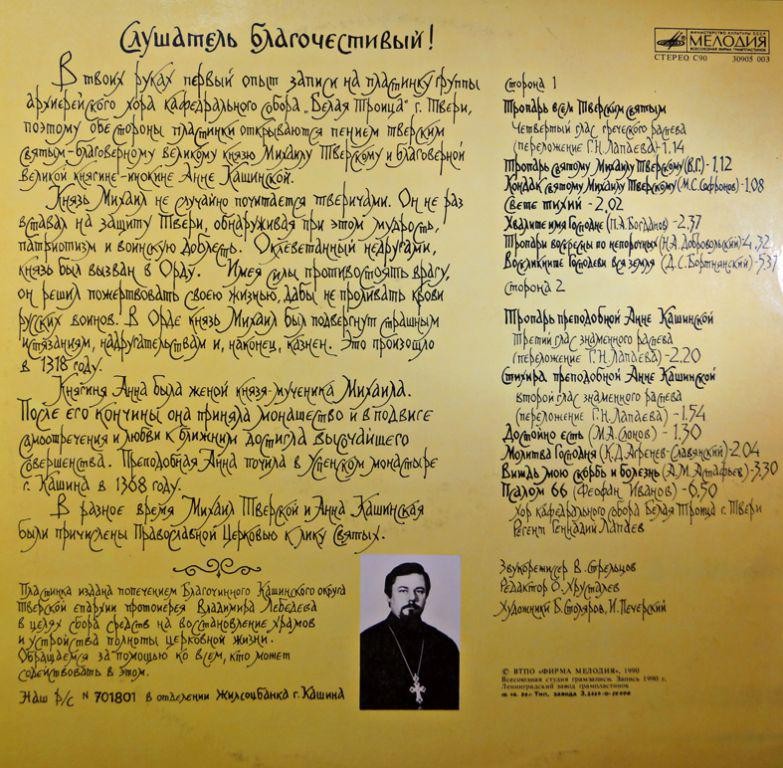 Слушатель благочестивый!
В твоих руках первый опыт записи на пластинку группы
архиерейского хора кафедрального собора „Белая Троица" г. Твери,
поэтому обе стороны пластинки открываются пением тверским
святым-благоверному великому князю Михаилу Тверскому и благоверной
великой княгине-инокине Анне Кашинской.
Князь Михаил не случайно почитается тверичами. Он не раз
вставал на защиту Твери, обнаруживая при этом мудрость,
патриотизм и воинскую доблесть. Оклеветанный недругами,
князь был вызван в Орду. Имея силы противостоять врагу,
он решил пожертвовать своею жизнью, дабы не проливать крови
русских воинов. В Орде князь Михаил был подвергнут страшным
истязаниям, надругательствам и, наконец, казнен. Это произошло
в 1318 году.
Княгиня Анна была женой князя-мученика Михаила.
После его кончины она приняла монашество и в подвиге
самоотречения и любви к ближним достигла высочайшего
совершенства. Преподобная Анна почила в Успенском монастыре
г. Кашина в 1368 году.
В разное время Михаил Тверской и Анна Кашинская
были причислены Православной Церковью к лику Святых.
Пластинка издана попечением Благочинного Кашинского округа
Тверской епархии протоиерея Владимира Лебедева
в целях сбора средств на восстановление храмов
и устройства полноты церковной жизни.
Обращаемся за помощью ко всем, кто может
содействовать в этом.
Наш р/с N 701801 в отделении Жилсоцбанка г. Кашина
МИНИСТЕРСТВО КУЛЬТУРЫ СССР
МЕЛОДИЯ
ВСЕСОЮЗНАЯ ФИРМА ГРАМПЛАСТИНОК
СТЕРЕО С90 30905 003
сторона 1
Тропарь всем Тверским святым
Четвертый глас греческого распева
(переложение Г.Н. Лапаева) - 1.14
Тропарь святому Михаилу Тверскому (В.Г.) - 1.12
Кондак святому Михаилу Тверскому (М.С. Сафронов) - 1.08
Свете тихий - 2.02
Хвалите имя Господне (П.А. Богданов) - 2.37
Тропари воскресны по непорочных (Н.А. Добровольский) - 4.32
Воскликните Господеви вся земля (Д.С. Бортнянский) - 5.37
сторона 2
Тропарь преподобной Анне Кашинской
Третий глас знаменного распева
(переложение Г.Н. Лапаева) - 2.20
Стихира преподобной Анне Кашинской
второй глас знаменного распева
(переложение Г.Н. Лапаева) - 1.54
Достойно есть (М.А. Слонов) - 1.30
Молитва Господня (К.Д. Агренев-Славянский) - 2.04
Виждь мою скорбь и болезнь (А.М. Астафьев) - 3.30
Псалом 66 (Феофан Иванов) - 6.50
Хор кафедрального собора Белая Троица г. Твери
Регент Геннадий Лапаев
Звукорежиссер В. Стрельцов
Редактор О. Хрусталев
Художники Б. Столяров, И. Печерский
© ВТПО «ФИРМА МЕЛОДИЯ», 1990
Всесоюзная студия грамзаписи. Запись 1990 г.
Ленинградский завод грампластинок
Тип. завода